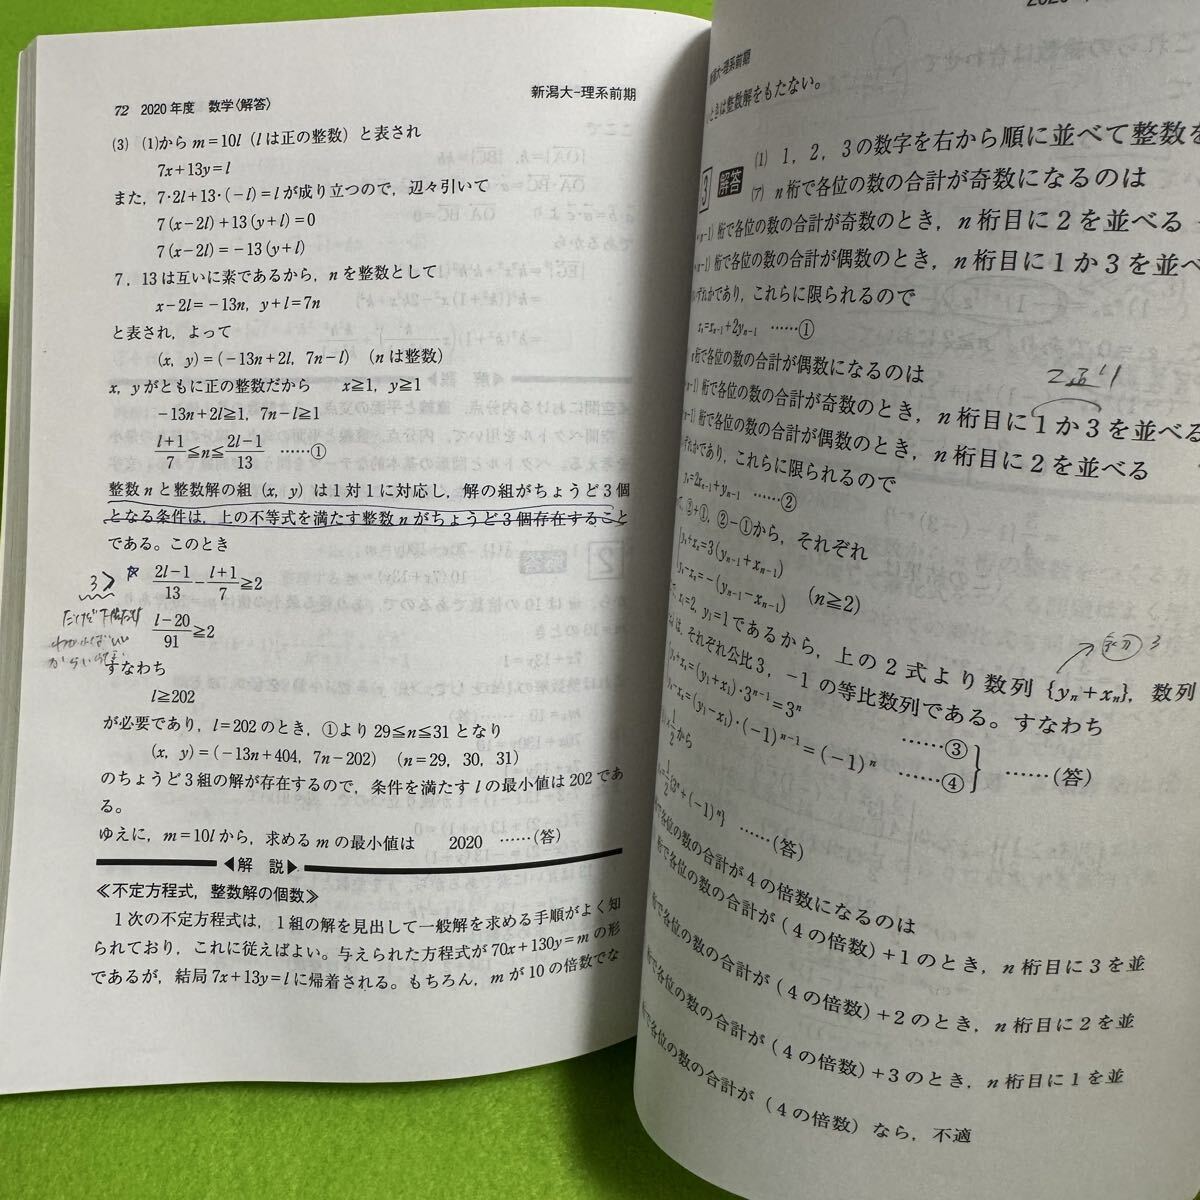 72 2020年度 数学〈解答〉
新潟大-理系前期
(3) (1)から m=10l (l は正の整数) と表され
7x+13y=l
また，7・2l+13・(−l)=l が成り立つので，辺々引いて
7(x−2l)+13(y+l)=0
7(x−2l)=−13(y+l)
7，13は互いに素であるから，n を整数として
x−2l=−13n, y+l=7n
と表され，よって
(x, y)=(−13n+2l, 7n−l) (n は整数)
x, y がともに正の整数だから x≧1, y≧1
−13n+2l≧1, 7n−l≧1
(l+1)/7≦n≦(2l−1)/13 ……①
整数 n と整数解の組 (x, y) は1対1に対応し，解の組がちょうど3個
となる条件は，上の不等式を満たす整数 n がちょうど3個存在すること
である。このとき
3≧
(2l−1)/13−(l+1)/7≧2
(l−20)/91≧2
すなわち
l≧202
が必要であり，l=202 のとき，①より 29≦n≦31 となり
(x, y)=(−13n+404, 7n−202) (n=29, 30, 31)
のちょうど3組の解が存在するので，条件を満たす l の最小値は202であ
る。
ゆえに，m=10l から，求める m の最小値は 2020 ……(答)
◀解 説▶
≪不定方程式，整数解の個数≫
1次の不定方程式は，1組の解を見出して一般解を求める手順がよく知
られており，これに従えばよい。与えられた方程式が 70x+130y=m の形
であるが，結局 7x+13y=l に帰着される。もちろん，m が10の倍数でな
新潟大-理系前期
ときは整数解をもたない。
3 解答 (1) 1，2，3の数字を右から順に並べて整数を
(ア) n 桁で各位の数の合計が奇数になるのは
n−1) 桁で各位の数の合計が奇数のとき，n 桁目に2を並べる
n−1) 桁で各位の数の合計が偶数のとき，n 桁目に1か3を並べ
いずれかであり，これらに限られるので
xn=xn−1+2yn−1 ……①
n 桁で各位の数の合計が偶数になるのは
n−1) 桁で各位の数の合計が奇数のとき，n 桁目に1か3を並べる
n−1) 桁で各位の数の合計が偶数のとき，n 桁目に2を並べる
ずれかであり，これらに限られるので
yn=2xn−1+yn−1 ……②
②+①，②−①から，それぞれ
yn+xn=3(yn−1+xn−1)
yn−xn=−(yn−1−xn−1) (n≧2)
x1=2, y1=1 であるから，上の2式より数列 {yn+xn}，数列
は，それぞれ公比 3，−1 の等比数列である。すなわち
3
yn+xn=(y1+x1)・3^(n−1)=3^n ……③
yn−xn=(y1−x1)・(−1)^(n−1)=(−1)^n ……④
……(答)
1/2 から
=1/2{3^n+(−1)^n} ……(答)
桁で各位の数の合計が4の倍数になるのは
桁で各位の数の合計が (4の倍数)+1のとき，n 桁目に3を並
桁で各位の数の合計が (4の倍数)+2のとき，n 桁目に2を並
桁で各位の数の合計が (4の倍数)+3のとき，n 桁目に1を並
桁で各位の数の合計が (4の倍数) なら，不適